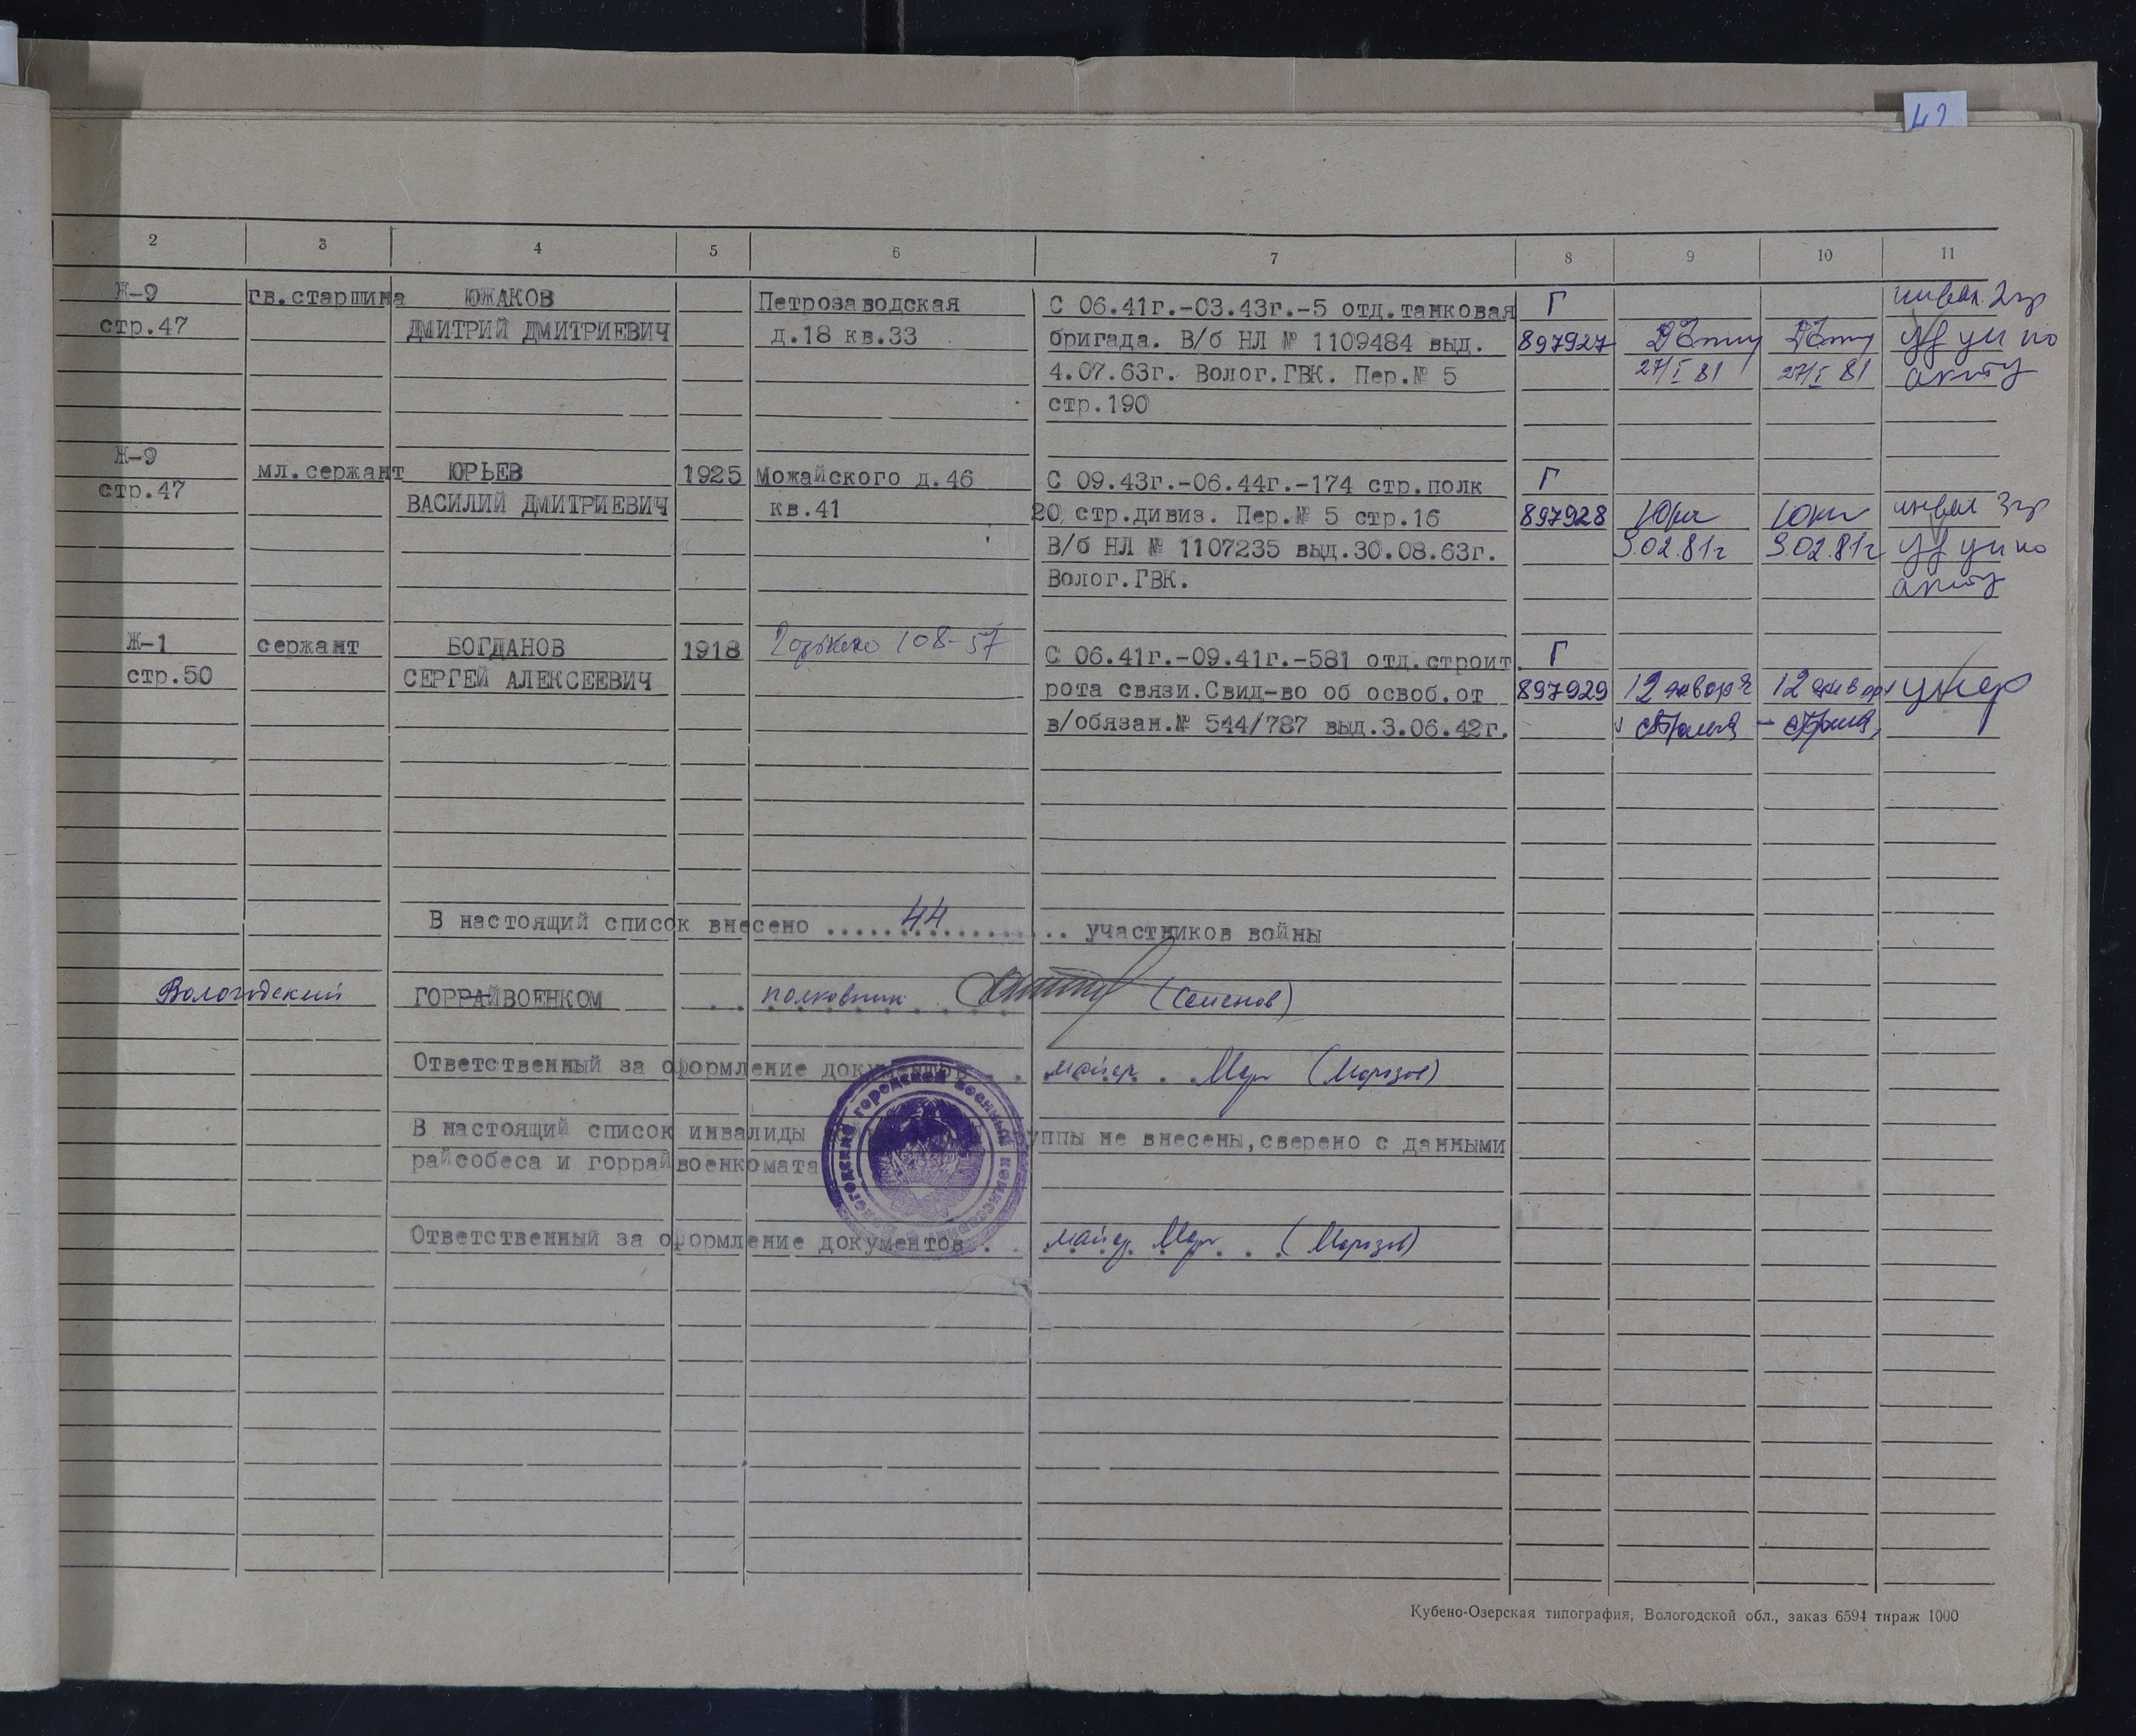 42
2 3 4 5 6 7 8 9 10 11
Ж-9 гв.старшина ЮЖАКОВ Петрозаводская С 06.41г.-03.43г.-5 отд.танковая Г инвал. 2 гр
стр.47 ДМИТРИЙ ДМИТРИЕВИЧ д.18 кв.33 бригада. В/б НЛ № 1109484 выд. 897927 по
4.07.63г. Волог.ГВК. Пер.№ 5 27/I 81 27/I 81 акту
стр.190
Ж-9 мл.сержант ЮРЬЕВ 1925 Можайского д.46 С 09.43г.-06.44г.-174 стр.полк Г
стр.47 ВАСИЛИЙ ДМИТРИЕВИЧ кв.41 20 стр.дивиз. Пер.№ 5 стр.16 897928 инвал 3 гр
В/б НЛ № 1107235 выд.30.08.63г. 3.02.81г 3.02.81г по
Волог.ГВК. акту
Ж-1 сержант БОГДАНОВ 1918 108-57 С 06.41г.-09.41г.-581 отд.строит Г
стр.50 СЕРГЕЙ АЛЕКСЕЕВИЧ рота связи.Свид-во об освоб.от 897929 12 января 12 января умер
в/обязан.№ 544/787 выд.3.06.42г.
В настоящий список внесено ..... 44 ..... участников войны
Вологодский ГОРРАЙВОЕНКОМ полковник (Семенов)
Ответственный за оформление документов . . майор Мор (Морозов)
В настоящий список инвалиды уппы не внесены,сверено с данными
райсобеса и горрайвоенкомата
Вологодский городской военный комиссариат
Ответственный за оформление документов . майор Мор (Морозов)
Кубено-Озерская типография, Вологодской обл., заказ 6594 тираж 1000